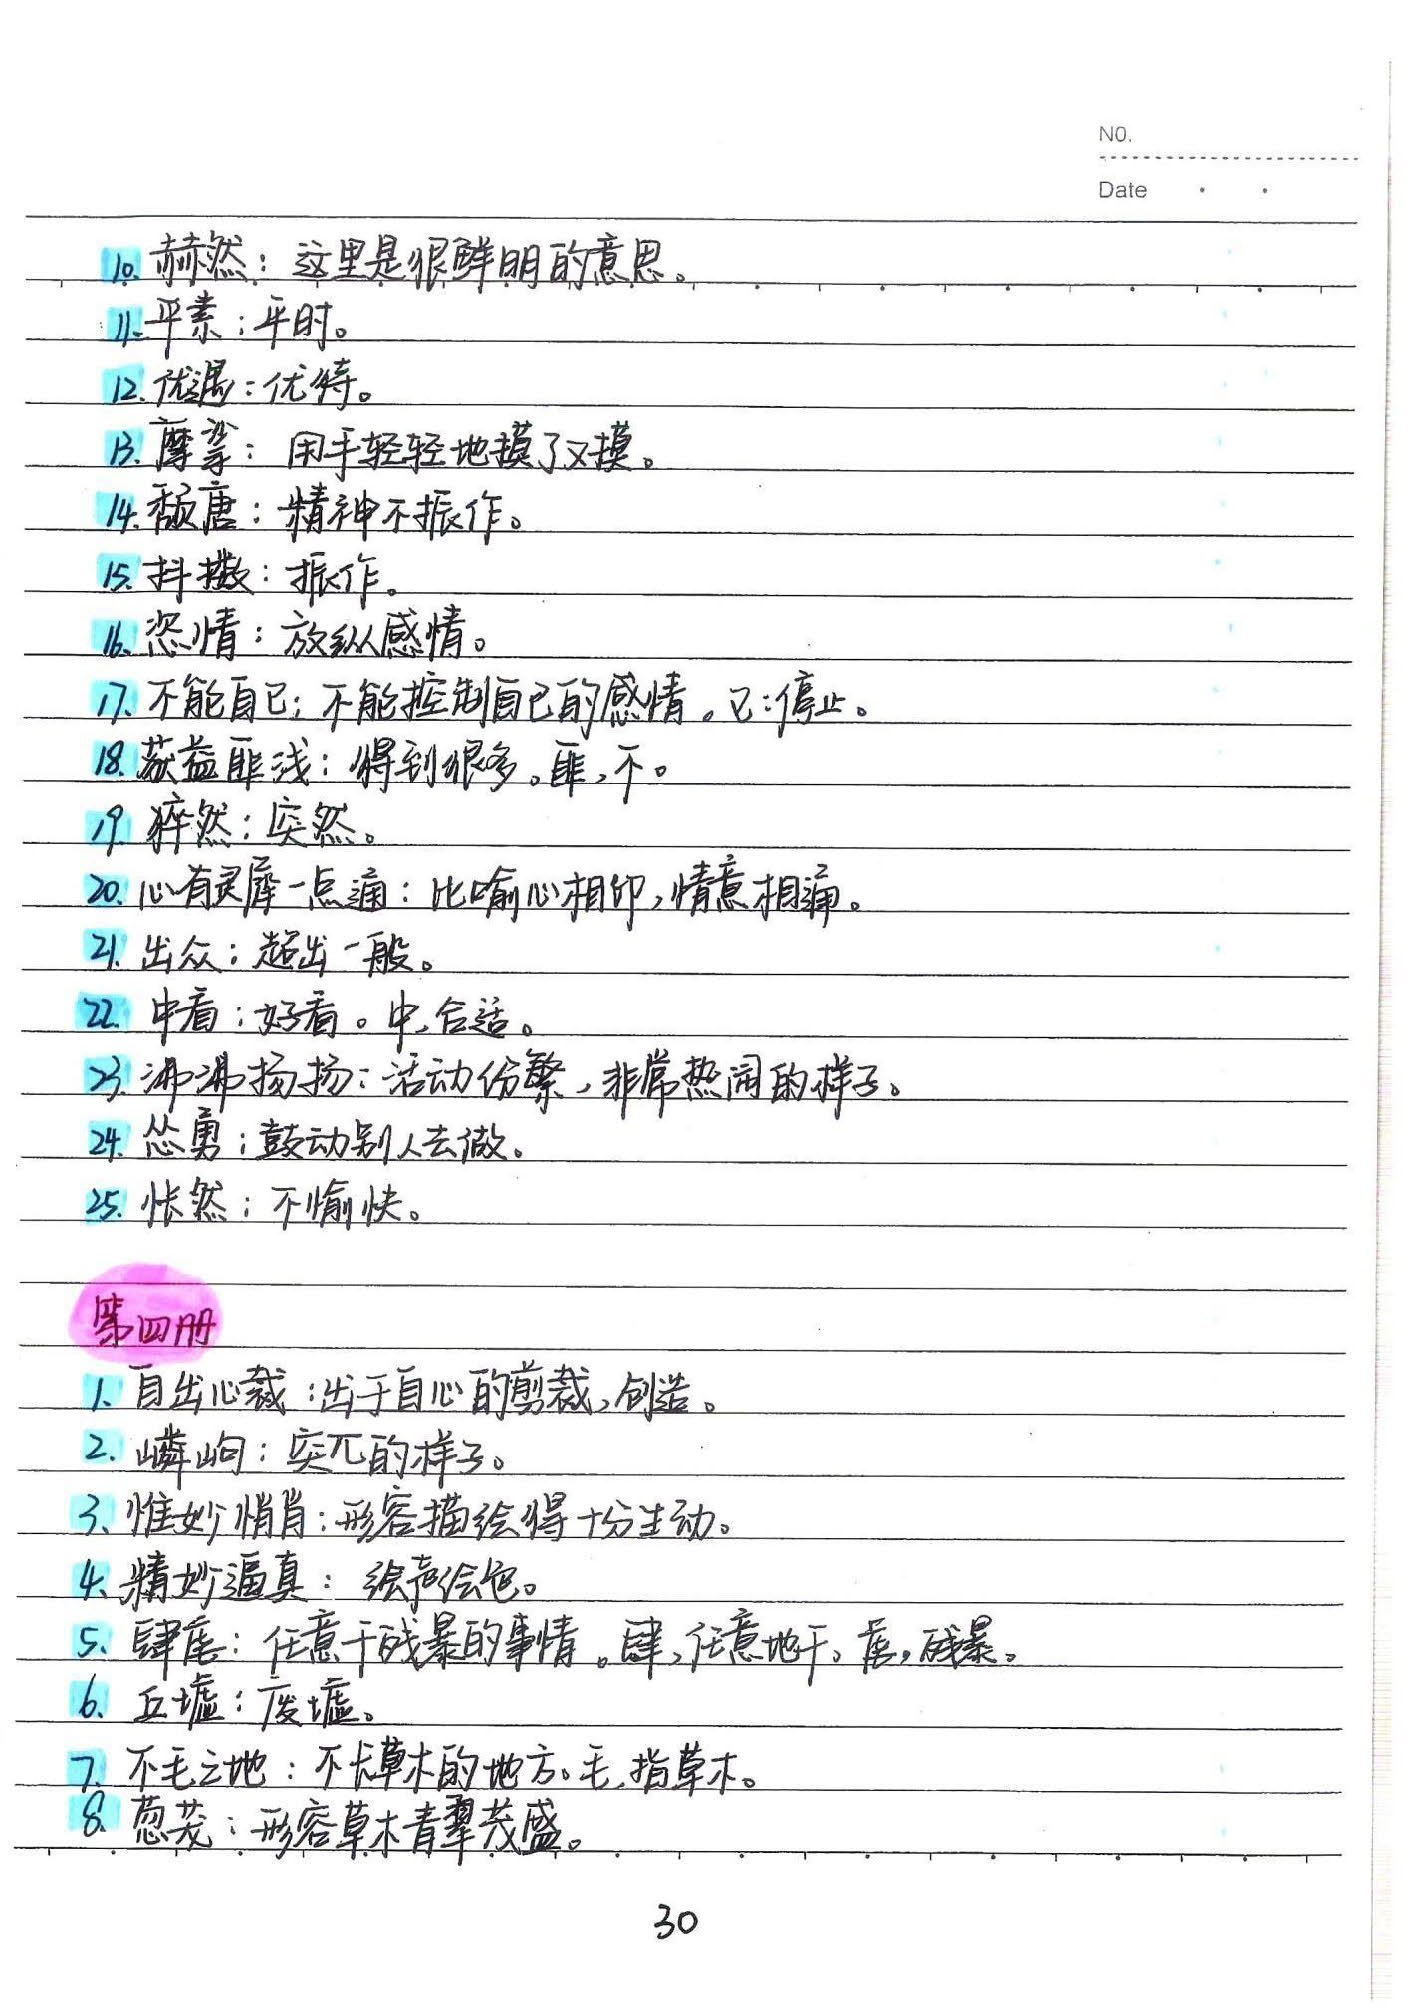 NO.
Date
10. 赫然：这里是很鲜明的意思。
11. 平素：平时。
12. 优遇：优待。
13. 摩挲：用手轻轻地摸了又摸。
14. 颓唐：精神不振作。
15. 抖擞：振作。
16. 恣情：放纵感情。
17. 不能自已：不能控制自己的感情。已：停止。
18. 获益匪浅：得到很多。匪，不。
19. 猝然：突然。
20. 心有灵犀一点通：比喻心心相印，情意相通。
21. 出众：超出一般。
22. 中看：好看。中，合适。
23. 沸沸扬扬：活动份繁，非常热闹的样子。
24. 怂恿：鼓动别人去做。
25. 怅然：不愉快。
第四册
1. 自出心裁：出于自心的剪裁，创造。
2. 嶙峋：突兀的样子。
3. 惟妙惟肖：形容描绘得十分生动。
4. 精妙逼真：绘声绘色。
5. 肆虐：任意干残暴的事情。肆，任意地干。虐，残暴。
6. 丘墟：废墟。
7. 不毛之地：不长草木的地方。毛，指草木。
8. 葱茏：形容草木青翠茂盛。
30